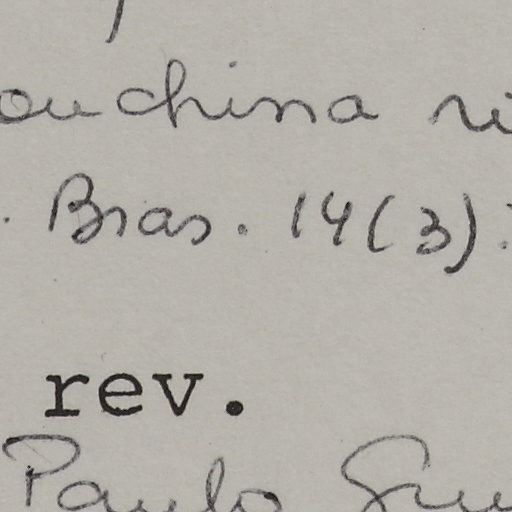 ouchina ri
. Bras. 14(3):
rev.
Paulo Gui